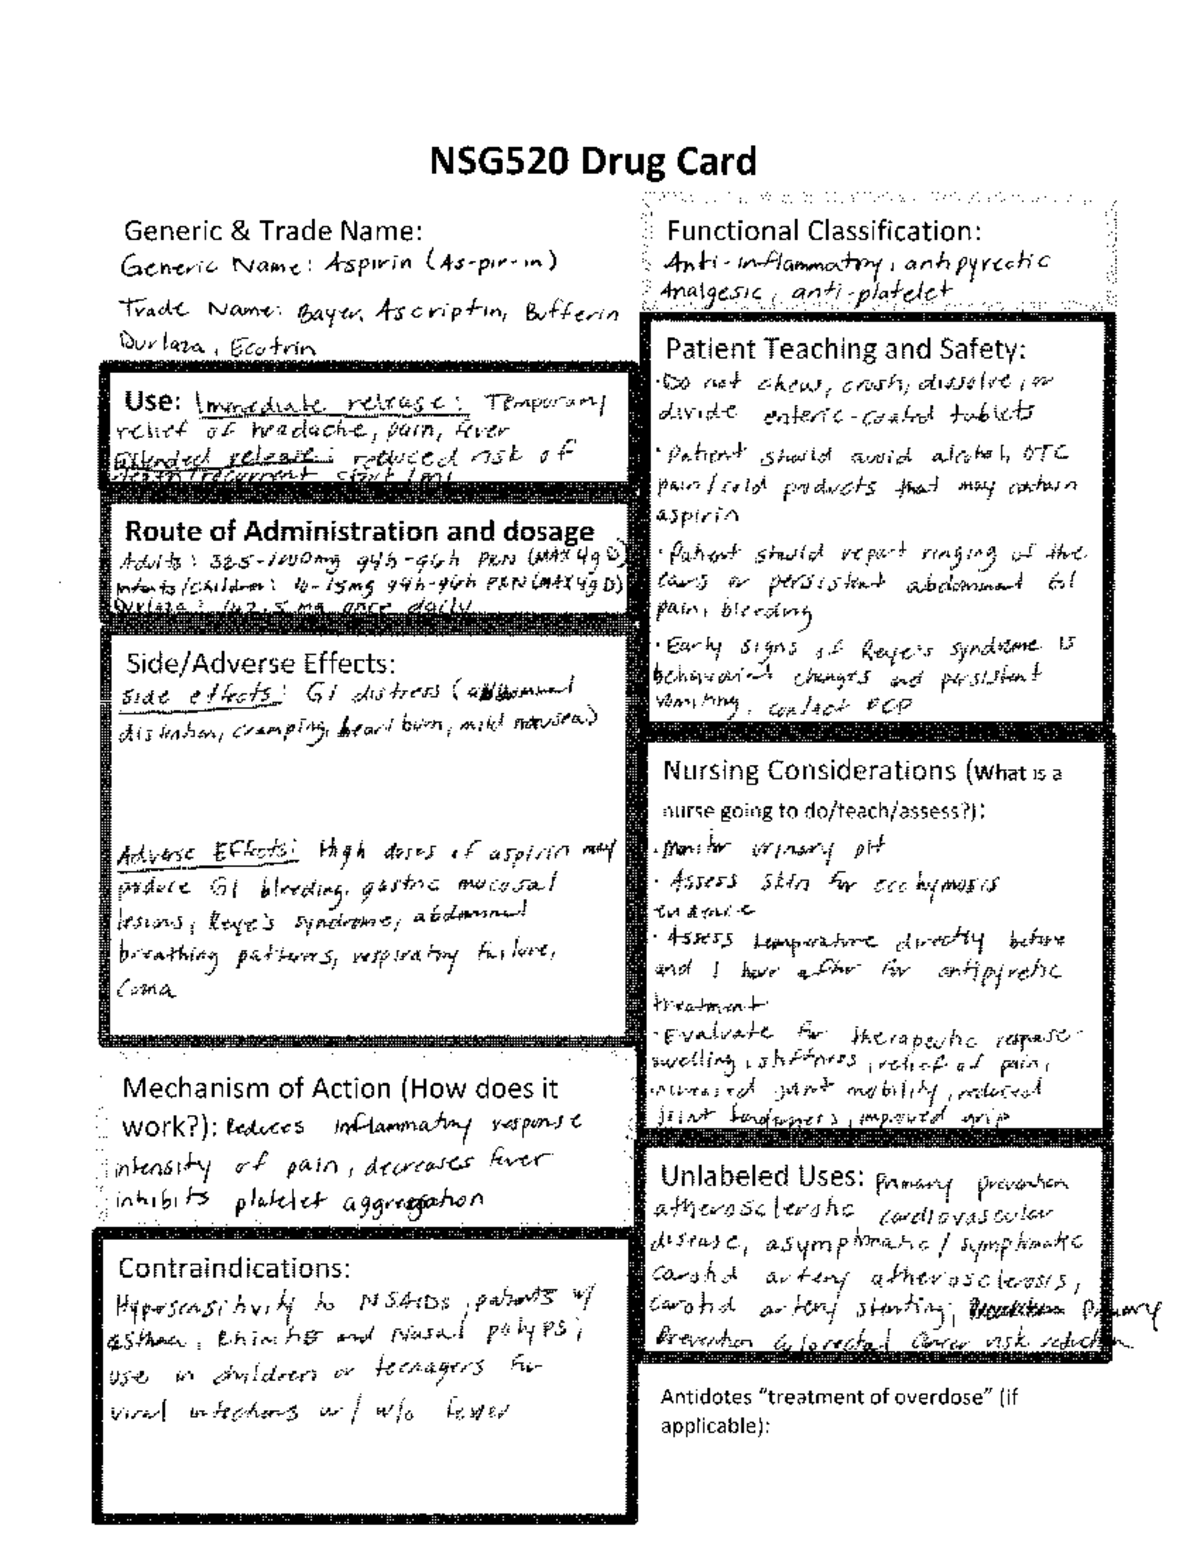 NSG520 Drug Card
Generic & Trade Name:
Generic Name: Aspirin (As-pir-in)
Trade Name: Bayer, Ascriptin, Bufferin
Durlaza, Ecotrin
Use: Immediate release: Temporary
relief of headache, pain, fever
Extended release: reduced risk of
death/recurrent
Route of Administration and dosage
Adults: 325-1000mg q4h-q6h PRN (MAX 4g D)
Infants/Children: 10-15mg q4h-q6h PRN (MAX 4g D)
Durlaza: 162.5 mg once daily
Side/Adverse Effects:
Side effects: GI distress (abdominal
distention, cramping, heart burn, mild nausea)
Adverse Effects: High doses of aspirin may
produce GI bleeding, gastric mucosal
lesions, Reye's syndrome, abdominal
breathing patterns, respiratory failure,
Coma
Mechanism of Action (How does it
work?): Reduces inflammatory response
intensity of pain, decreases fever
inhibits platelet aggregation
Contraindications:
Hypersensitivity to NSAIDs, patients w/
asthma, Rhinitis and Nasal polyps;
use in children or teenagers for
viral infections w/ w/o fever
Functional Classification:
Anti-inflammatory, antipyretic
Analgesic, anti-platelet
Patient Teaching and Safety:
·Do not chew, crush, dissolve, or
divide enteric-coated tablets
·Patient should avoid alcohol, OTC
pain/cold products that may contain
aspirin
·Patient should report ringing of the
ears or persistent abdominal GI
pain, bleeding
·Early signs of Reye's syndrome is
behavioral changes and persistent
vomiting, contact PCP
Nursing Considerations (What is a
nurse going to do/teach/assess?):
·Monitor urinary pH
·Assess skin for ecchymosis
·Assess temperature directly before
and 1 hour after for antipyretic
treatment
·Evaluate for therapeutic response-
swelling, stiffness, relief of pain,
increased joint mobility, reduced
joint tenderness, improved grip
Unlabeled Uses: Primary prevention
atherosclerotic cardiovascular
disease, asymptomatic/symptomatic
carotid artery atherosclerosis,
carotid artery stenting, Primary
Prevention Colorectal Cancer risk reduction
Antidotes “treatment of overdose” (if
applicable):